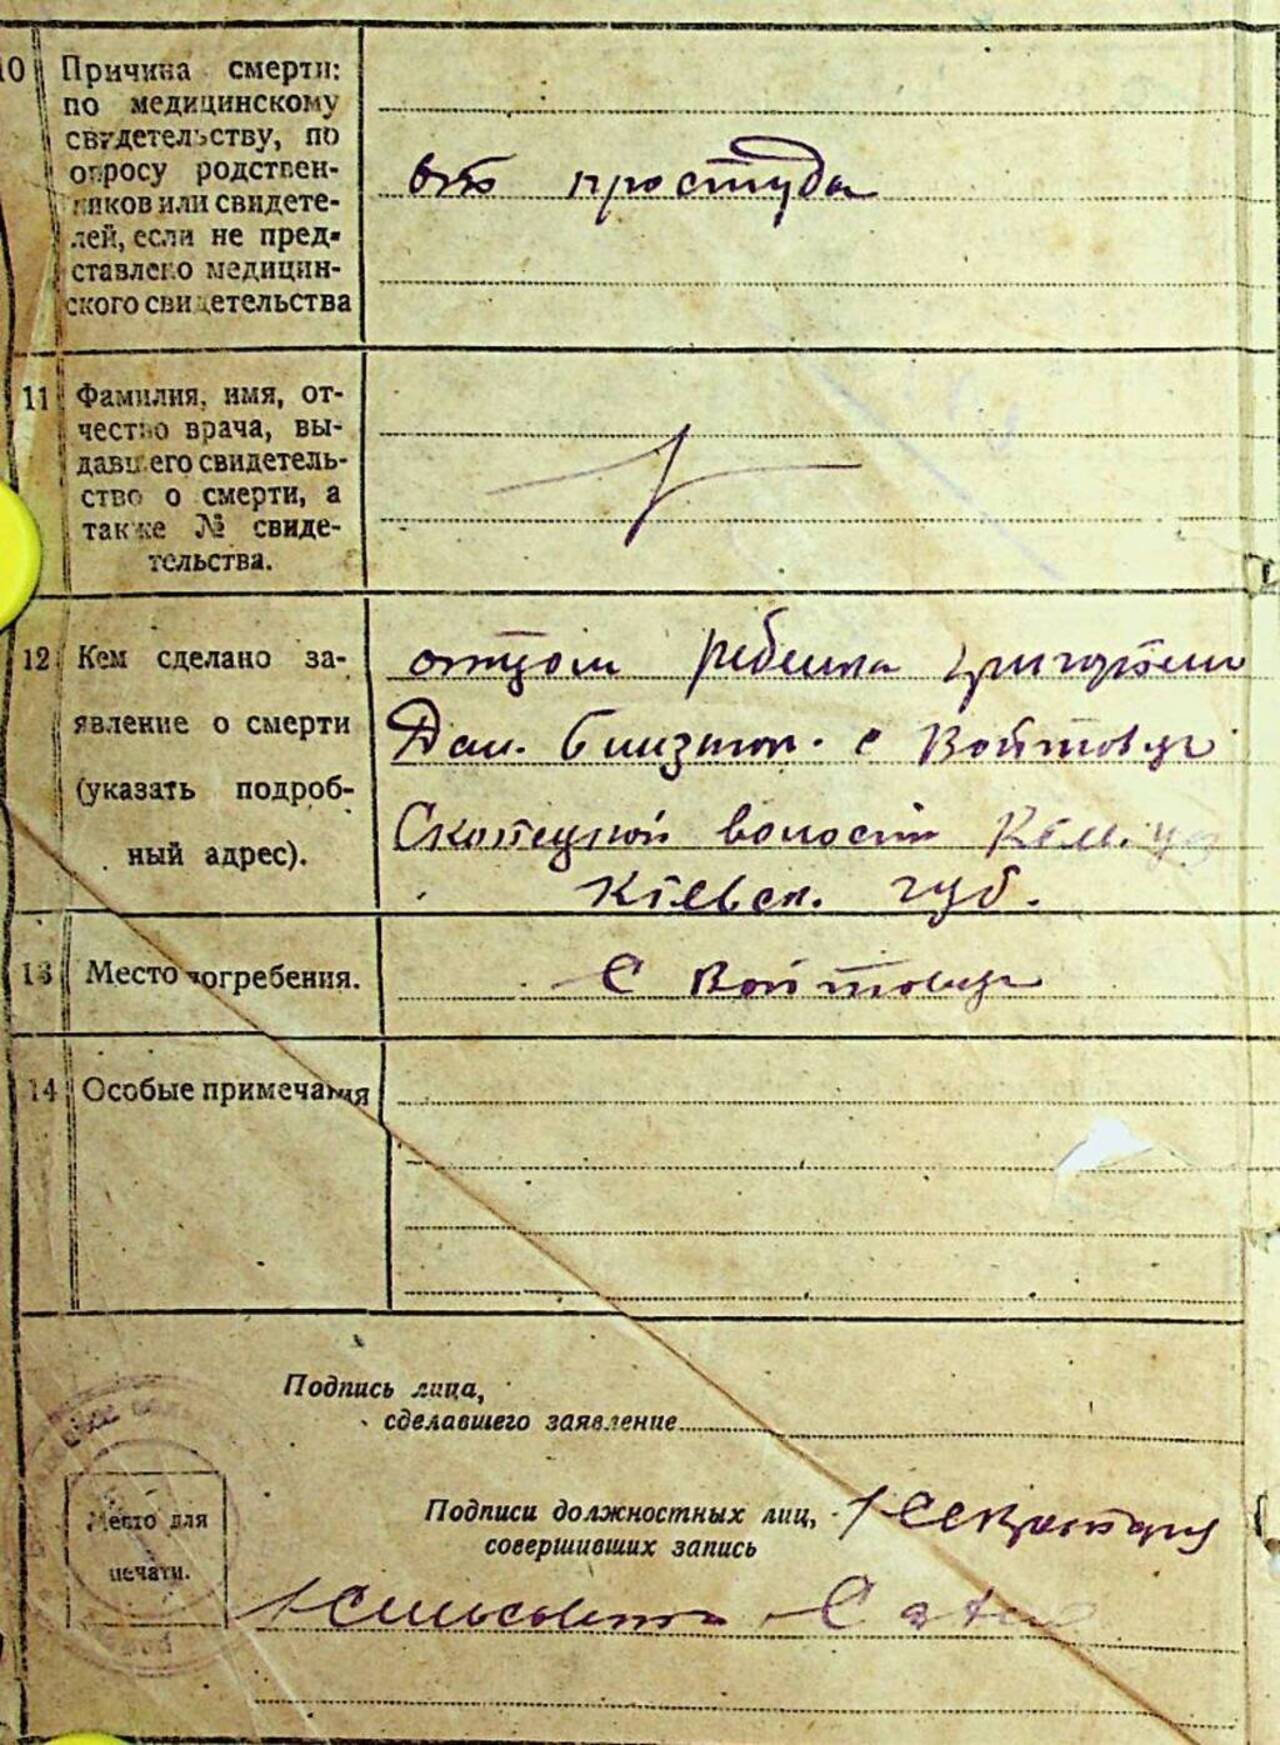 10 Причина смерти:
по медицинскому
свидетельству, по
опросу родствен-
ников или свидете-
лей, если не пред-
ставлено медицин-
ского свидетельства
от простуда
11 Фамилия, имя, от-
чество врача, вы-
давшего свидетель-
ство о смерти, а
также № свиде-
тельства.
12 Кем сделано за-
явление о смерти
(указать подроб-
ный адрес).
отцом ребенка Григорием
Дан. с Войтовцы
волости
Киевск. губ.
13 Место погребения.
С Войтовцы
14 Особые примечания
Подпись лица,
сделавшего заявление
Подписи должностных лиц,
совершивших запись
Секретарь
сельсовета
Место для
печати.